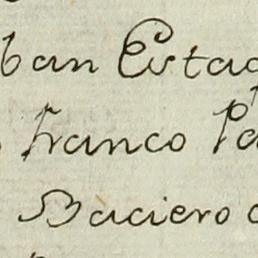 ban Estad
Franco Pa
Baciero